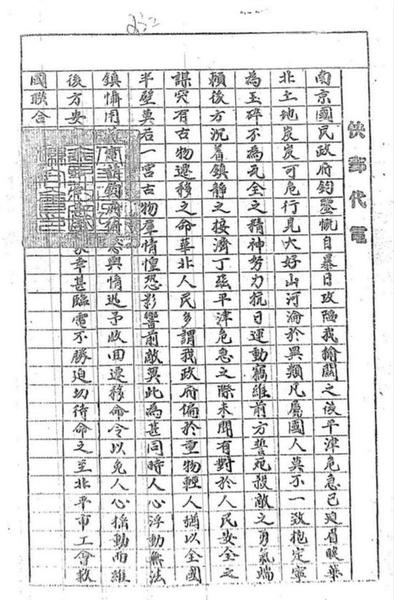 快郵代電
南京國民政府鈞鑒慨自暴日攻陷我榆關之後平津危急已迫眉睫華
北土地岌岌可危行見大好山河淪於異類凡屬國人莫不一致抱定寧
為玉碎不為瓦全之精神努力抗日運動竊維前方誓死殺敵之勇氣端
賴後方沉着鎮静之接濟丁茲平津危急之際未聞有對於人民安全之
謀突有古物遷移之命華北人民多謂我政府偏於重物輕人猶以全國
半壁莫若一宮古物羣情惶恐影響前敵莫此為甚同時人心浮動無法
鎮懾用輿情迅予收回遷移命令以免人心搖動而維
後方安幸甚臨電不勝迫切待命之至北平市工會救
國聯合